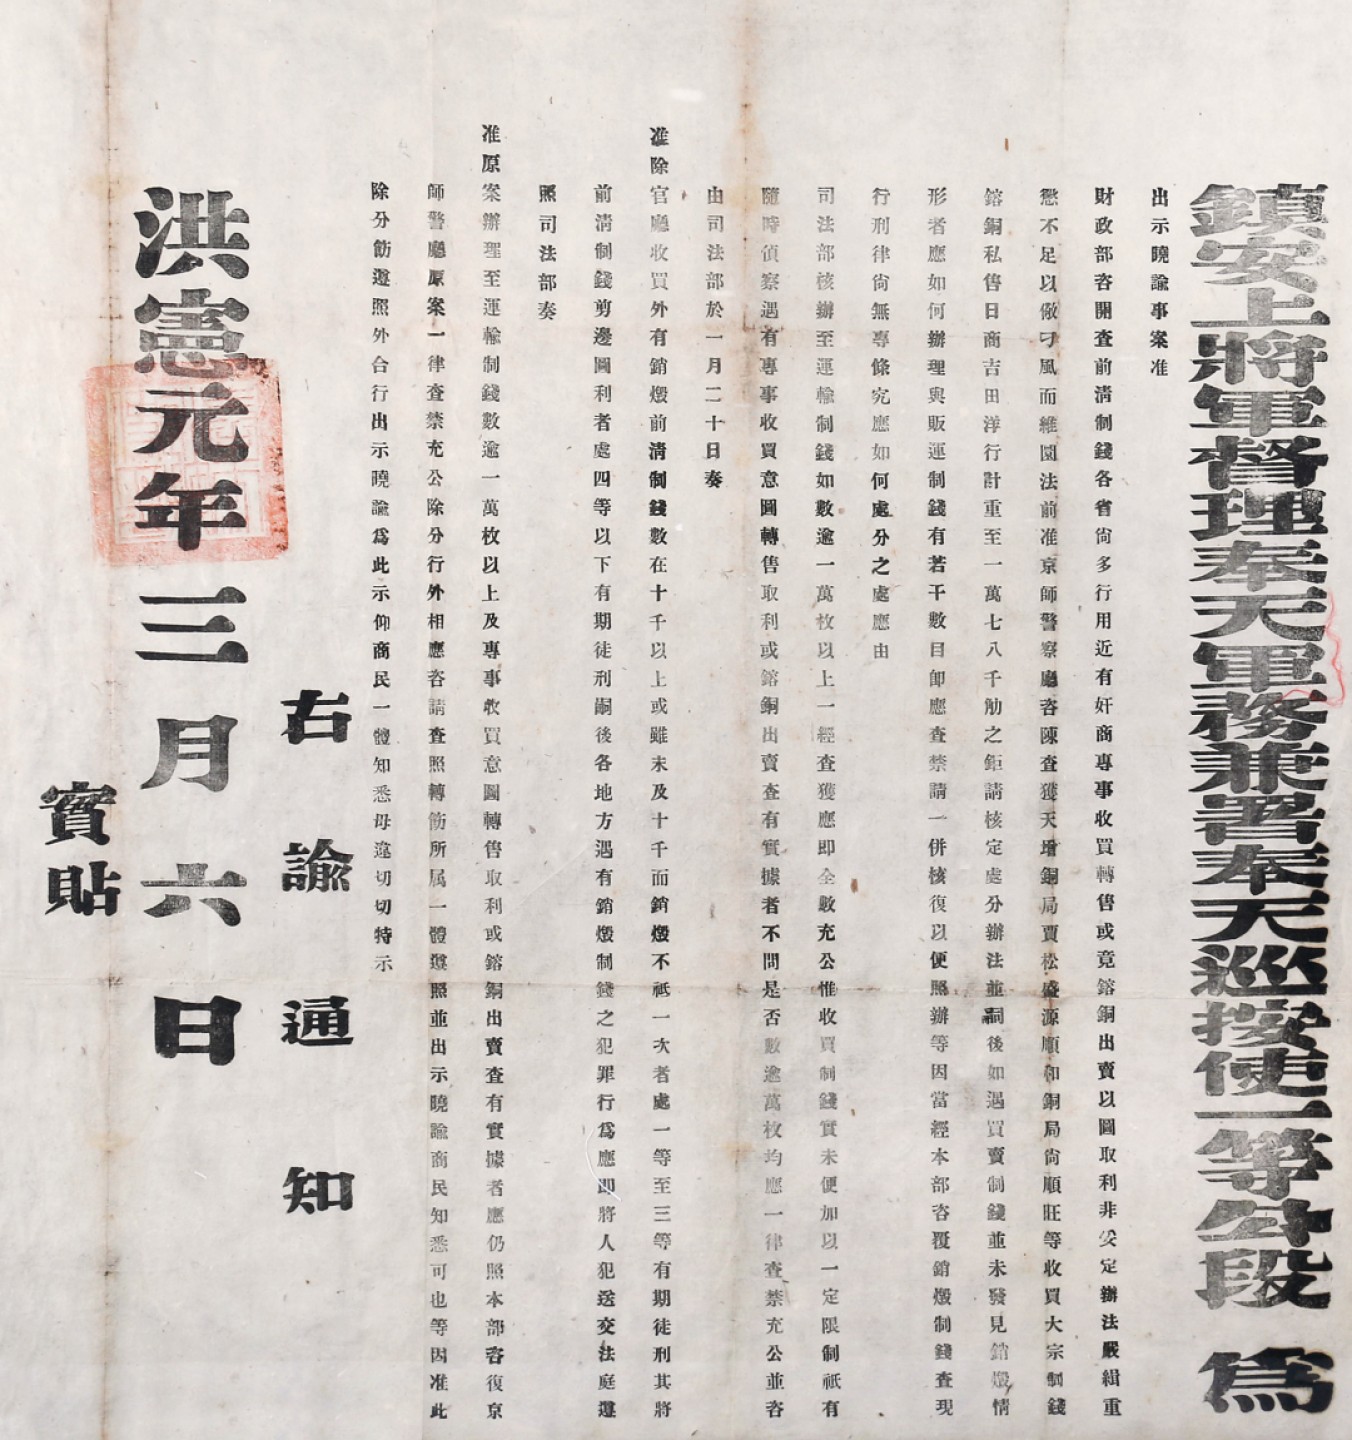 鎮安上將軍督理奉天軍務兼署奉天巡按使一等公段 爲
出示曉諭事案准
財政部咨開查前淸制錢各省尙多行用近有奸商專事收買轉售或竟鎔銅出賣以圖取利非妥定辦法嚴緝重
懲不足以儆刁風而維圜法前准京師警察廳咨陳查獲天增銅局賈松盛源順和銅局尙順旺等收買大宗制錢
鎔銅私售日商吉田洋行計重至一萬七八千觔之鉅請核定處分辦法並嗣後如遇買賣制錢並未發見銷燬情
形者應如何辦理與販運制錢有若干數目卽應查禁請一併核復以便照辦等因當經本部咨覆銷燬制錢查現
行刑律尙無專條究應如何處分之處應由
司法部核辦至運輸制錢如數逾一萬枚以上一經查獲應即全數充公惟收買制錢實未便加以一定限制祇有
隨時偵察遇有專事收買意圖轉售取利或鎔銅出賣查有實據者不問是否數逾萬枚均應一律查禁充公並咨
由司法部於一月二十日奏
准除官廳收買外有銷燬前淸制錢數在十千以上或雖未及十千而銷燬不祇一次者處一等至三等有期徒刑其將
前淸制錢剪邊圖利者處四等以下有期徒刑嗣後各地方遇有銷燬制錢之犯罪行爲應即將人犯送交法庭遵
照司法部奏
准原案辦理至運輸制錢數逾一萬枚以上及專事收買意圖轉售取利或鎔銅出賣查有實據者應仍照本部咨復京
師警廳原案一律查禁充公除分行外相應咨請查照轉飭所属一體遵照並出示曉諭商民知悉可也等因准此
除分飭遵照外合行出示曉諭爲此示仰商民一體知悉毋違切切特示
右諭通知
洪憲元年三月六日
實貼